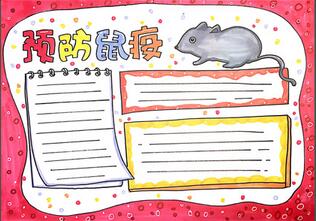 预防鼠疫